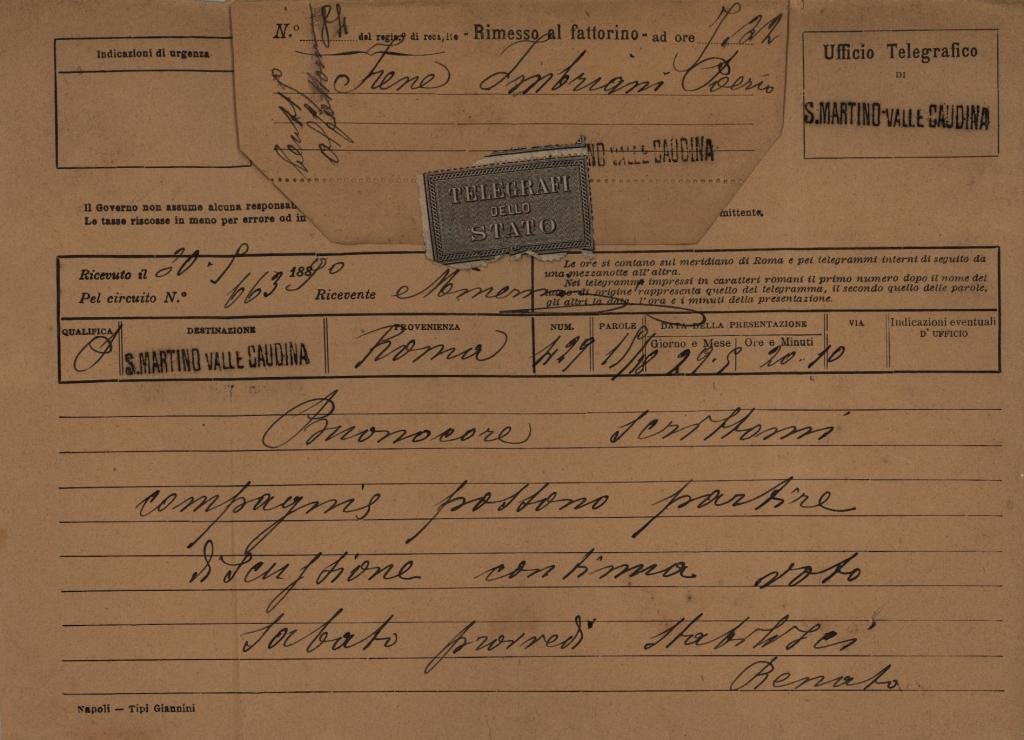 N.º 84 del regis.º di reca,ito - Rimesso al fattorino - ad ore 7,22
Irene Imbriani Poerio
Indicazioni di urgenza
Ufficio Telegrafico
DI
S. MARTINO VALLE CAUDINA
NO VALLE CAUDINA
TELEGRAFI
DELLO
STATO
Il Governo non assume alcuna responsab
Le tasse riscosse in meno per errore od in
mittente.
Ricevuto il 30 - 5 1890
Pel circuito N.º 663 Ricevente
Le ore si contano sul meridiano di Roma e pei telegrammi interni di seguito da
una mezzanotte all'altra.
Nei telegrammi impressi in caratteri romani il primo numero dopo il nome del
luogo di origine rappresenta quello del telegramma, il secondo quello delle parole,
gli altri la data, l'ora e i minuti della presentazione.
QUALIFICA DESTINAZIONE PROVENIENZA NUM. PAROLE DATA DELLA PRESENTAZIONE VIA Indicazioni eventuali
Giorno e Mese Ore e Minuti D'UFFICIO
S. MARTINO VALLE CAUDINA Roma 429 15/18 29-5 20-10
Buonocore scrittomi
compagnis possono partire
discussione continua voto
sabato provvedi stabilisci
Renato
Napoli — Tipi Giannini